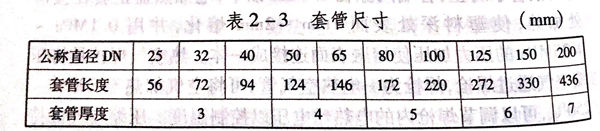 表2-3 套管尺寸 (mm)
公称直径DN 25 32 40 50 65 80 100 125 150 200
套管长度 56 72 94 124 146 172 220 272 330 436
套管厚度 3 4 5 6 7